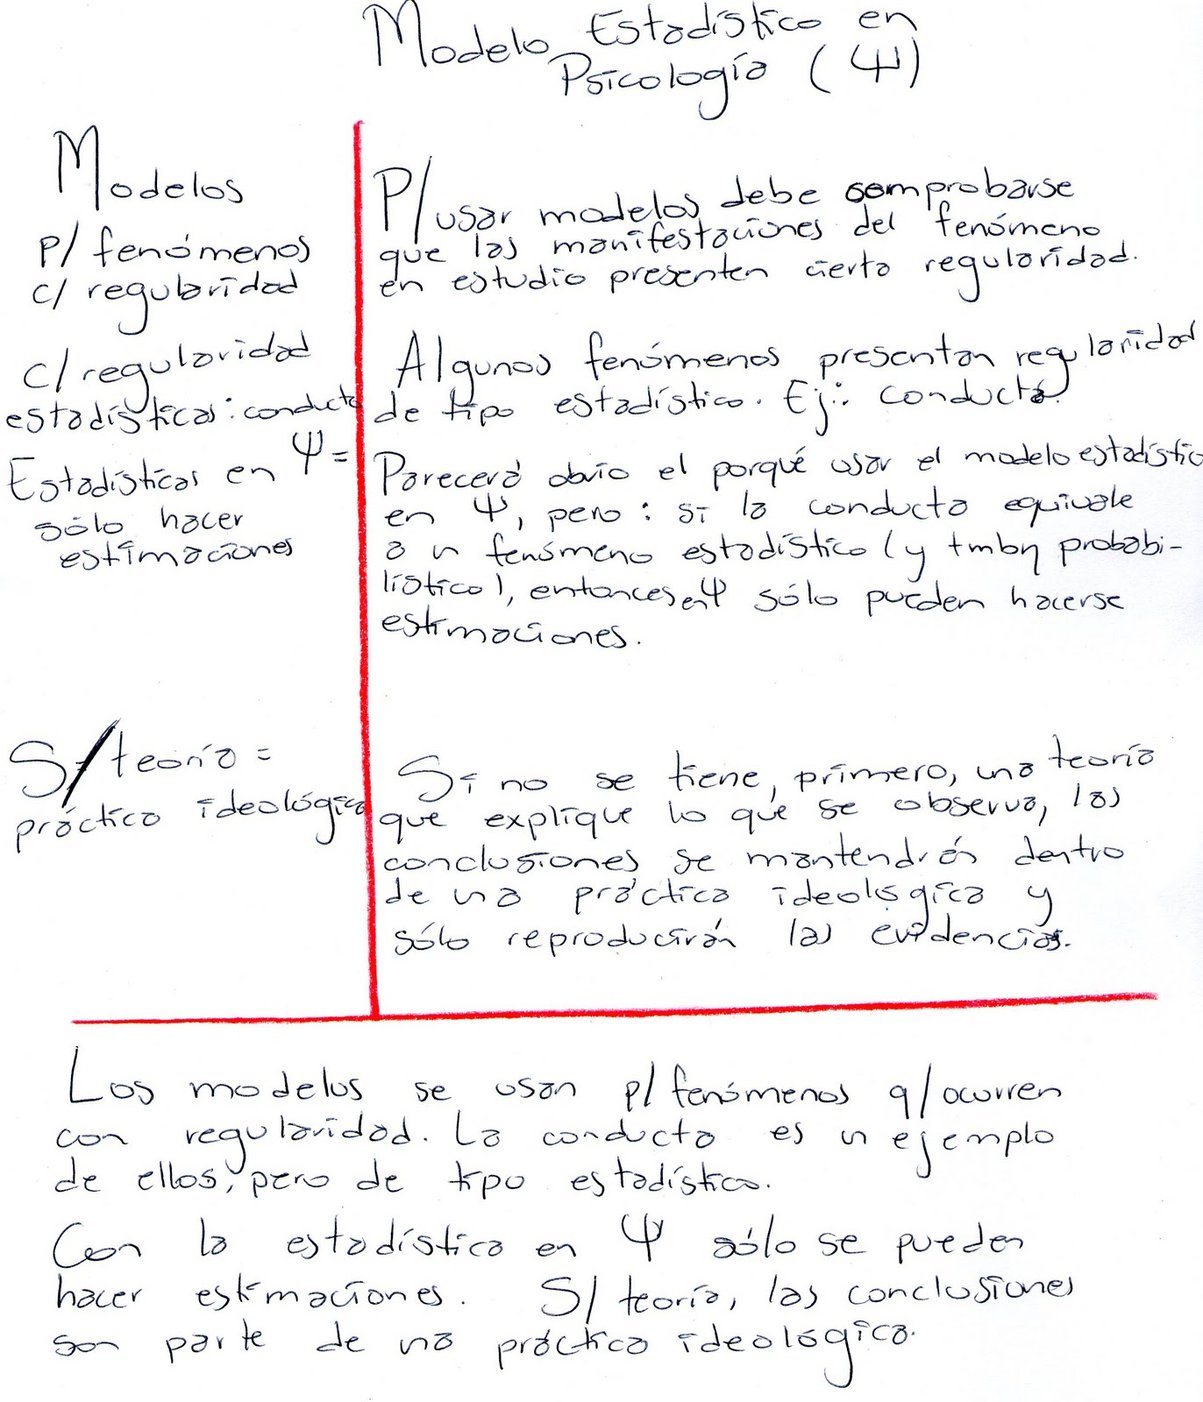 Modelo Estadístico en
Psicología (Ψ)
Modelos
p/ fenómenos
c/ regularidad
c/ regularidad
estadísticas: conducta
Estadísticas en Ψ =
sólo hacer
estimaciones
S/ teoría =
práctica ideológica
P/ usar modelos debe comprobarse
que las manifestaciones del fenómeno
en estudio presenten cierta regularidad.
Algunos fenómenos presentan regularidad
de tipo estadístico. Ej.: conducta.
Parecerá obvio el porqué usar el modelo estadístic
en Ψ, pero: si la conducta equivale
a un fenómeno estadístico (y tmbn probabi-
lístico), entonces en Ψ sólo pueden hacerse
estimaciones.
Si no se tiene, primero, una teoría
que explique lo que se observa, las
conclusiones se mantendrán dentro
de una práctica ideológica y
sólo reproducirán las evidencias.
Los modelos se usan p/ fenómenos q/ ocurren
con regularidad. La conducta es un ejemplo
de ellos, pero de tipo estadístico.
Con la estadística en Ψ sólo se pueden
hacer estimaciones. S/ teoría, las conclusiones
son parte de una práctica ideológica.